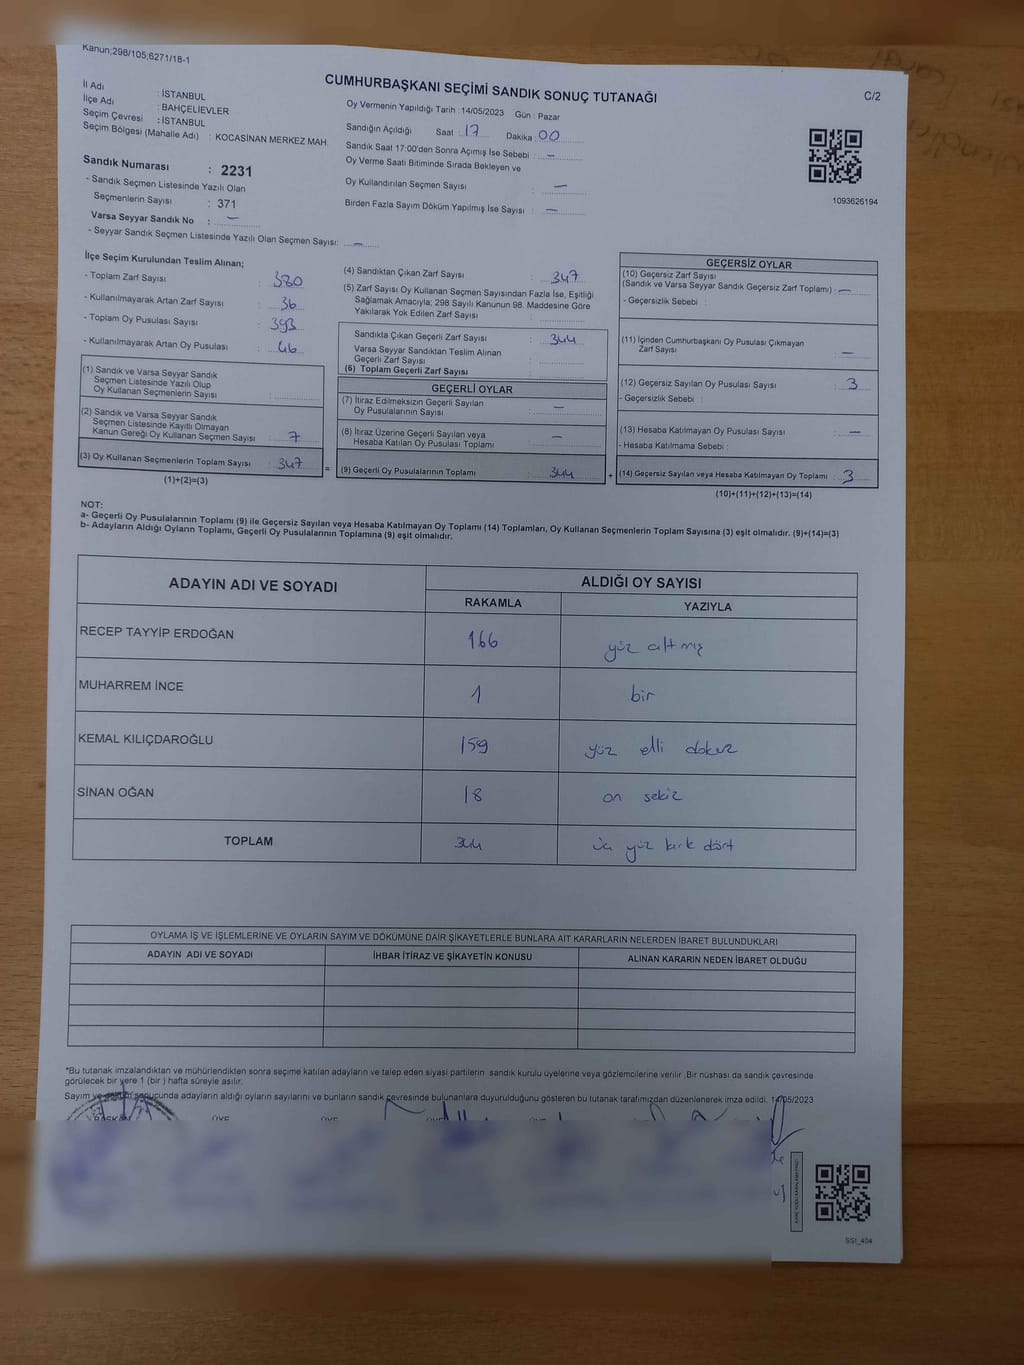 Kanun;298/105;6271/18-1
CUMHURBAŞKANI SEÇİMİ SANDIK SONUÇ TUTANAĞI
C/2
İl Adı : İSTANBUL
İlçe Adı : BAHÇELİEVLER
Seçim Çevresi : İSTANBUL
Seçim Bölgesi (Mahalle Adı) : KOCASİNAN MERKEZ MAH.
Sandık Numarası : 2231
- Sandık Seçmen Listesinde Yazılı Olan
Seçmenlerin Sayısı : 371
Varsa Seyyar Sandık No : —
- Seyyar Sandık Seçmen Listesinde Yazılı Olan Seçmen Sayısı: —
Oy Vermenin Yapıldığı Tarih : 14/05/2023 Gün : Pazar
Sandığın Açıldığı Saat : 17 Dakika : 00
Sandık Saat 17:00'den Sonra Açımış İse Sebebi : —
Oy Verme Saati Bitiminde Sırada Bekleyen ve
Oy Kullandırılan Seçmen Sayısı : —
Birden Fazla Sayım Döküm Yapılmış İse Sayısı : —
1093626194
İlçe Seçim Kurulundan Teslim Alınan;
- Toplam Zarf Sayısı : 380
- Kullanılmayarak Artan Zarf Sayısı : 36
- Toplam Oy Pusulası Sayısı : 393
- Kullanılmayarak Artan Oy Pusulası : 46
(1) Sandık ve Varsa Seyyar Sandık
Seçmen Listesinde Yazılı Olup
Oy Kullanan Seçmenlerin Sayısı :
(2) Sandık ve Varsa Seyyar Sandık
Seçmen Listesinde Kayıtlı Olmayan
Kanun Gereği Oy Kullanan Seçmen Sayısı : 7
(3) Oy Kullanan Seçmenlerin Toplam Sayısı : 347
(1)+(2)=(3)
(4) Sandıktan Çıkan Zarf Sayısı : 347
(5) Zarf Sayısı Oy Kullanan Seçmen Sayısından Fazla İse, Eşitliği
Sağlamak Amacıyla; 298 Sayılı Kanunun 98. Maddesine Göre
Yakılarak Yok Edilen Zarf Sayısı :
Sandıkta Çıkan Geçerli Zarf Sayısı : 344
Varsa Seyyar Sandıktan Teslim Alınan
Geçerli Zarf Sayısı :
(6) Toplam Geçerli Zarf Sayısı :
GEÇERLİ OYLAR
(7) İtiraz Edilmeksizin Geçerli Sayılan
Oy Pusulalarının Sayısı : —
(8) İtiraz Üzerine Geçerli Sayılan veya
Hesaba Katılan Oy Pusulası Toplamı : —
= (9) Geçerli Oy Pusulalarının Toplamı : 344 +
GEÇERSİZ OYLAR
(10) Geçersiz Zarf Sayısı
(Sandık ve Varsa Seyyar Sandık Geçersiz Zarf Toplamı) : —
- Geçersizlik Sebebi :
(11) İçinden Cumhurbaşkanı Oy Pusulası Çıkmayan
Zarf Sayısı : —
(12) Geçersiz Sayılan Oy Pusulası Sayısı : 3
- Geçersizlik Sebebi :
(13) Hesaba Katılmayan Oy Pusulası Sayısı : —
- Hesaba Katılmama Sebebi :
(14) Geçersiz Sayılan veya Hesaba Katılmayan Oy Toplamı : 3
(10)+(11)+(12)+(13)=(14)
NOT:
a- Geçerli Oy Pusulalarının Toplamı (9) ile Geçersiz Sayılan veya Hesaba Katılmayan Oy Toplamı (14) Toplamları, Oy Kullanan Seçmenlerin Toplam Sayısına (3) eşit olmalıdır. (9)+(14)=(3)
b- Adayların Aldığı Oyların Toplamı, Geçerli Oy Pusulalarının Toplamına (9) eşit olmalıdır.
ADAYIN ADI VE SOYADI ALDIĞI OY SAYISI
RAKAMLA YAZIYLA
RECEP TAYYİP ERDOĞAN 166 yüz altmış
MUHARREM İNCE 1 bir
KEMAL KILIÇDAROĞLU 159 yüz elli dokuz
SİNAN OĞAN 18 on sekiz
TOPLAM 344 üç yüz kırk dört
OYLAMA İŞ VE İŞLEMLERİNE VE OYLARIN SAYIM VE DÖKÜMÜNE DAİR ŞİKAYETLERLE BUNLARA AİT KARARLARIN NELERDEN İBARET BULUNDUKLARI
ADAYIN ADI VE SOYADI İHBAR İTİRAZ VE ŞİKAYETİN KONUSU ALINAN KARARIN NEDEN İBARET OLDUĞU
*Bu tutanak imzalandıktan ve mühürlendikten sonra seçime katılan adayların ve talep eden siyasi partilerin sandık kurulu üyelerine veya gözlemcilerine verilir .Bir nüshası da sandık çevresinde
görülecek bir yere 1 (bir ) hafta süreyle asılır.
Sayım ve sonucunda adayların aldığı oyların sayılarını ve bunların sandık çevresinde bulunanlara duyurulduğunu gösteren bu tutanak tarafımızdan düzenlenerek imza edildi. 14/05/2023
BAŞKAN ÜYE ÜYE ÜYE ÜYE
SSI_404